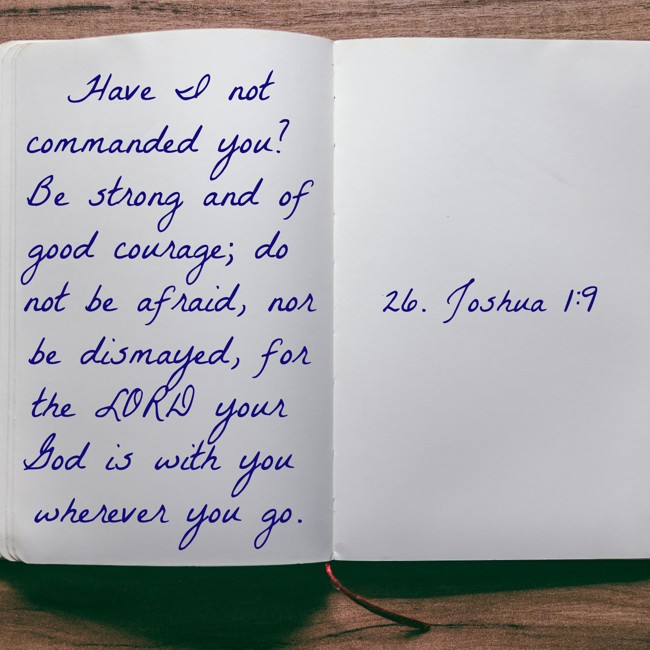 Have I not
commanded you?
Be strong and of
good courage; do
not be afraid, nor
be dismayed, for
the LORD your
God is with you
wherever you go.
26. Joshua 1:9